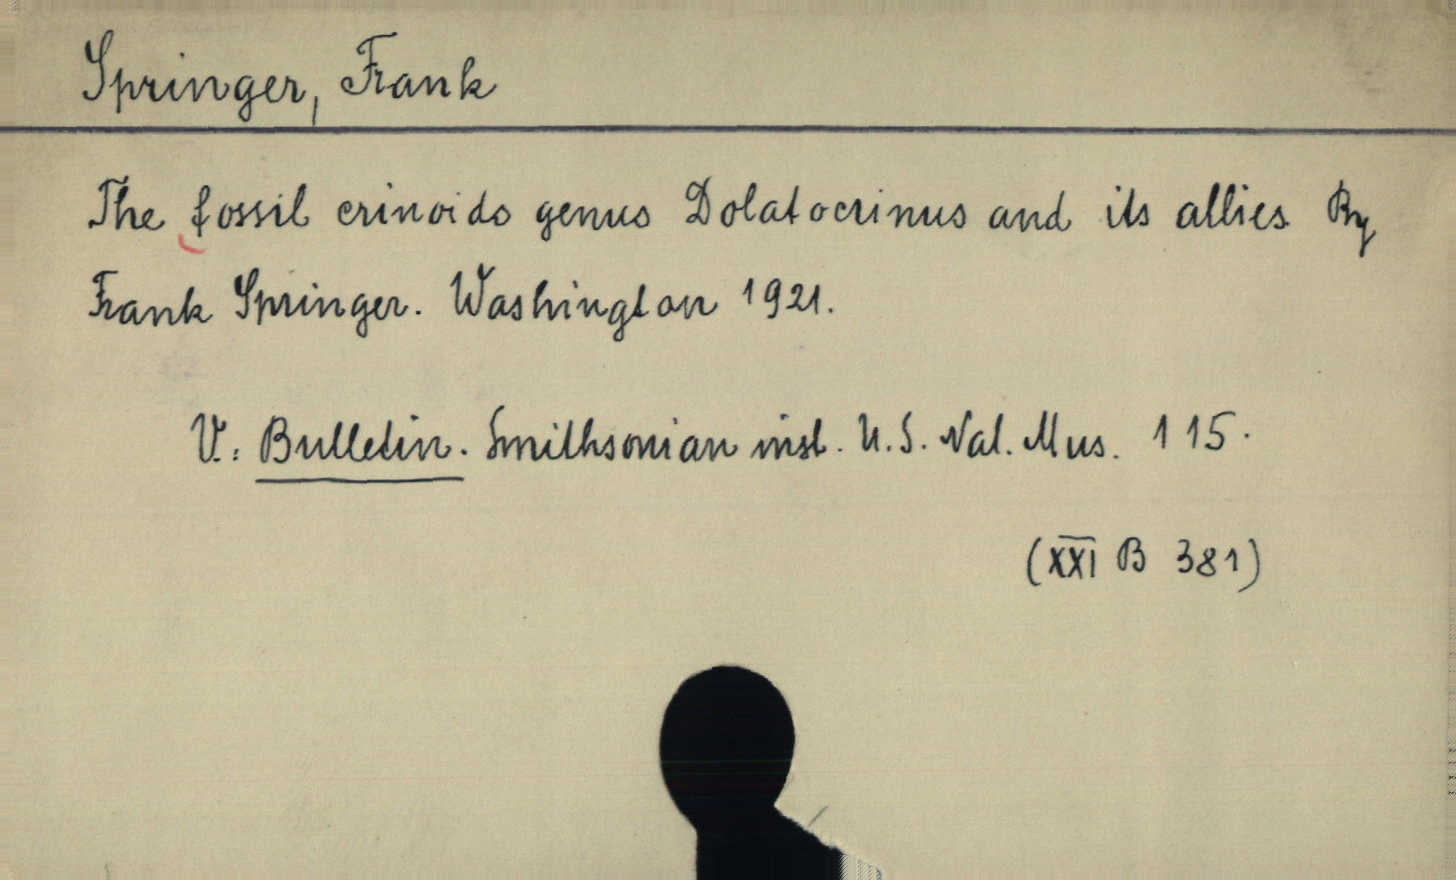 Springer, Frank
The fossil crinoids genus Dolatocrinus and its allies By
Frank Springer. Washington 1921.
V.: Bulletin. Smithsonian inst. U.S. Nat. Mus. 115.
(XXI B 381)